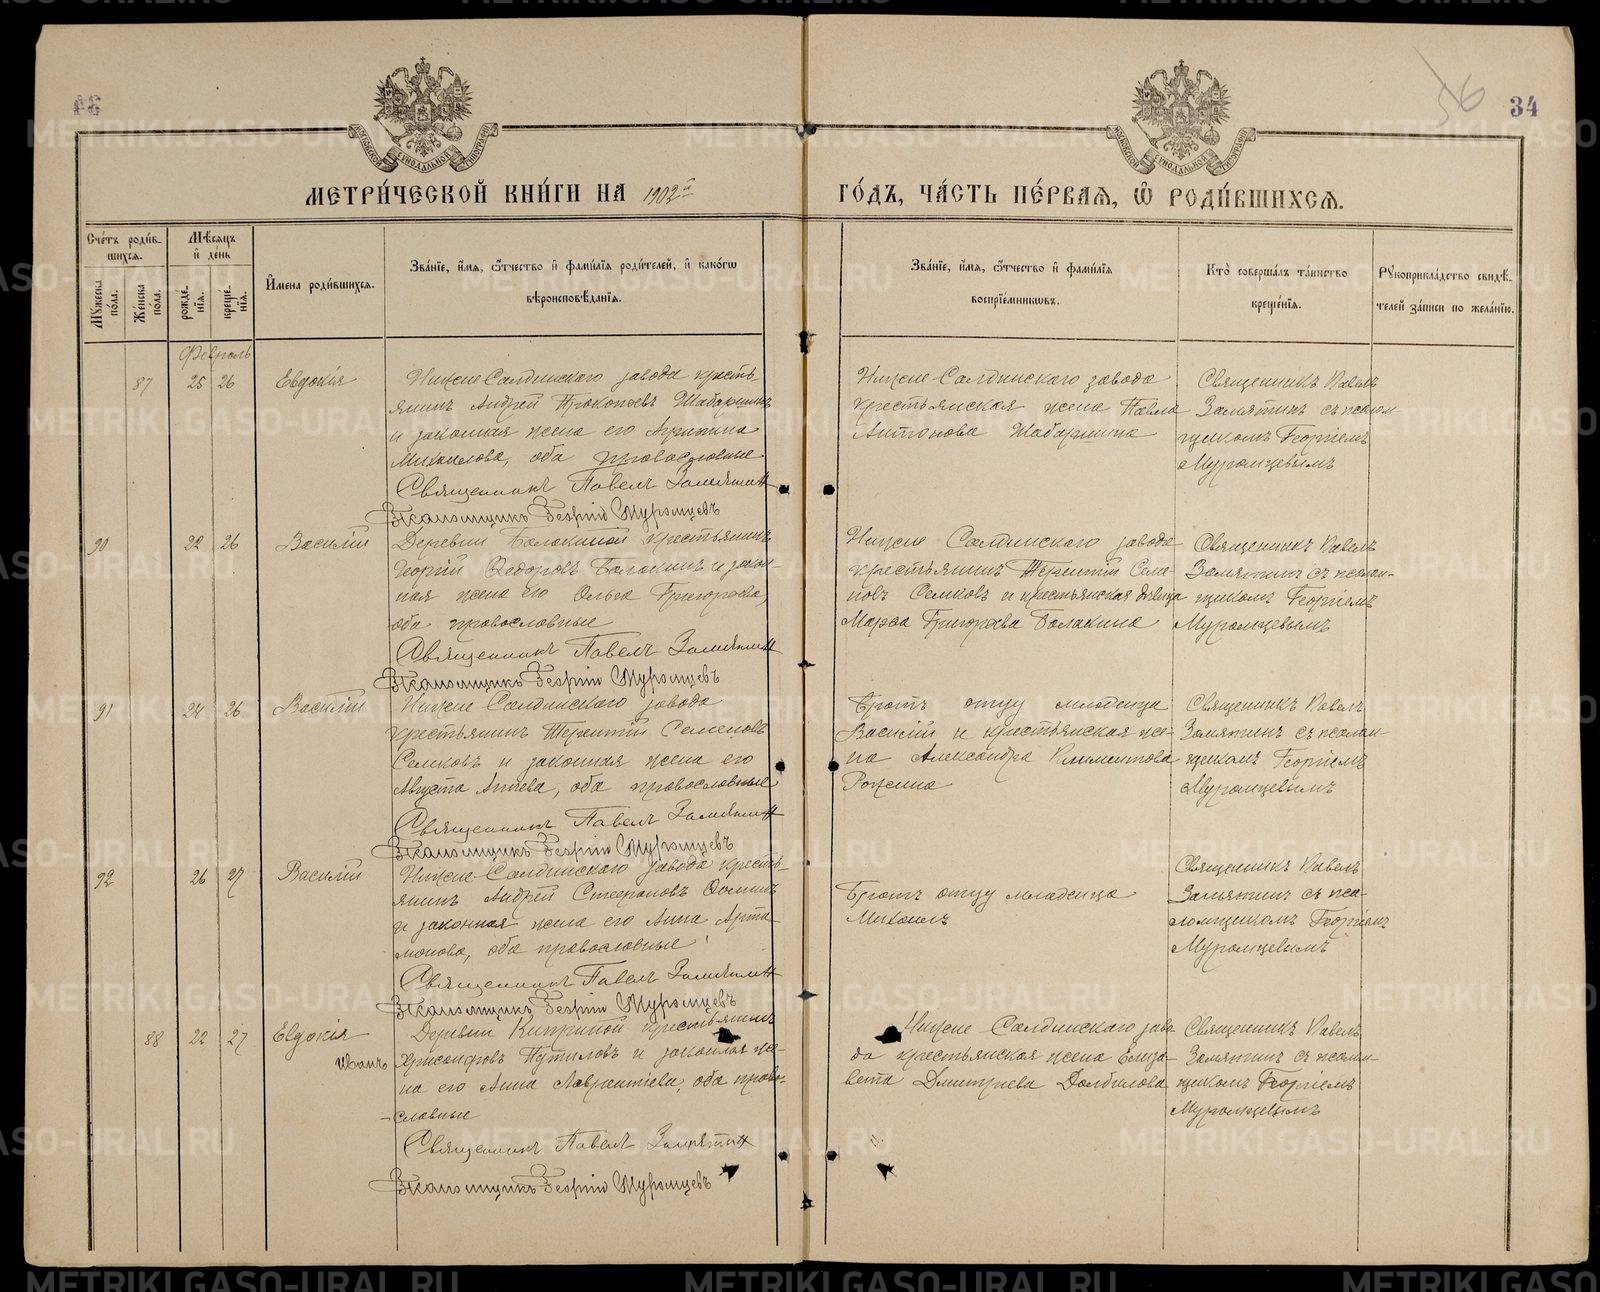 34
МЕТРИ́ЧЕСКОЙ КНИ́ГИ НА 1902й
ГО́ДЪ, ЧА́СТЬ ПЕ́РВАѦ, Ѡ РОДИ́ВШИХСѦ.
Сче́тъ роди́в-
шихсѧ.
Му́жеска по́ла.
Же́нска по́ла.
Мѣ́сѧцъ и де́нь
рожде́нїѧ.
креще́нїѧ.
И҆мена роди́вшихсѧ.
Зва́нїе, и҆́мѧ, ѻ҆́тчество и҆ фами́лїѧ роди́телей, и҆ како́гѡ
вѣроисповѣ́данїѧ.
Зва́нїе, и҆́мѧ, ѻ҆́тчество и҆ фами́лїѧ
воспрїе́мникѡвъ.
Кто̀ соверша́лъ та́инство
креще́нїѧ.
Рꙋкоприкла́дство свидѣ́-
телей за́писи по жела́нїю.
Февраль
87 25 26 Евдокія
Нижне-Салдинскаго завода кресть-
янинъ Андрей Прокопьевъ Шабаршинъ
и законная жена его Агрипина
Михаилова, оба православные
Священникъ Павелъ Замятин
Псаломщикъ Георгій Муромцевъ
Нижне-Салдинскаго завода
крестьянская жена Павла
Антонова Шабаршина
Священникъ Павелъ
Замятинъ съ псалом-
щикомъ Георгіемъ
Муромцевымъ
90 22 26 Василій
Деревни Балакиной крестьянинъ
Георгій Ѳедоровъ Балакинъ и закон-
ная жена его Ольга Григорьева,
оба православные
Священникъ Павелъ Замятин
Псаломщикъ Георгій Муромцевъ
Нижне-Салдинскаго завода
крестьянинъ Терентій Семе-
новъ Семковъ и крестьянская дѣвица
Марѳа Григорьева Балакина
Священникъ Павелъ
Замятинъ съ псалом-
щикомъ Георгіемъ
Муромцевымъ
91 24 26 Василій
Нижне Салдинскаго завода
крестьянинъ Терентій Семеновъ
Семковъ и законная жена его
Августа оба православные
Священникъ Павелъ Замятин
Псаломщикъ Георгій Муромцевъ
Братъ отцу младенца
Василій и крестьянская же-
на Александра Климентова
Священникъ Павелъ
Замятинъ съ псалом-
щикомъ Георгіемъ
Муромцевымъ
92 26 27 Василій
Нижне-Салдинскаго завода кресть-
янинъ Андрей Стефановъ Ѳоминъ
и законная жена его Анна Арта-
монова, оба православные
Священникъ Павелъ Замятин
Псаломщикъ Георгій Муромцевъ
Братъ отцу младенца
Михаилъ
Священникъ Павелъ
Замятинъ съ пса-
ломщикомъ Георгіемъ
Муромцевымъ
88 22 27 Евдокія
Деревни Киприной крестьянинъ
Иванъ Хрисанфовъ Путиловъ и законная же-
на его Анна Лаврентіева, оба право-
-славные
Священникъ Павелъ Замятин
Псаломщикъ Георгій Муромцевъ
Нижне Салдинскаго заво-
да крестьянская жена Елиза-
вета Дмитріева Долбилова
Священникъ Павелъ
Замятинъ съ псалом-
щикомъ Георгіемъ
Муромцевымъ
METRIKI.GASO-URAL.RU